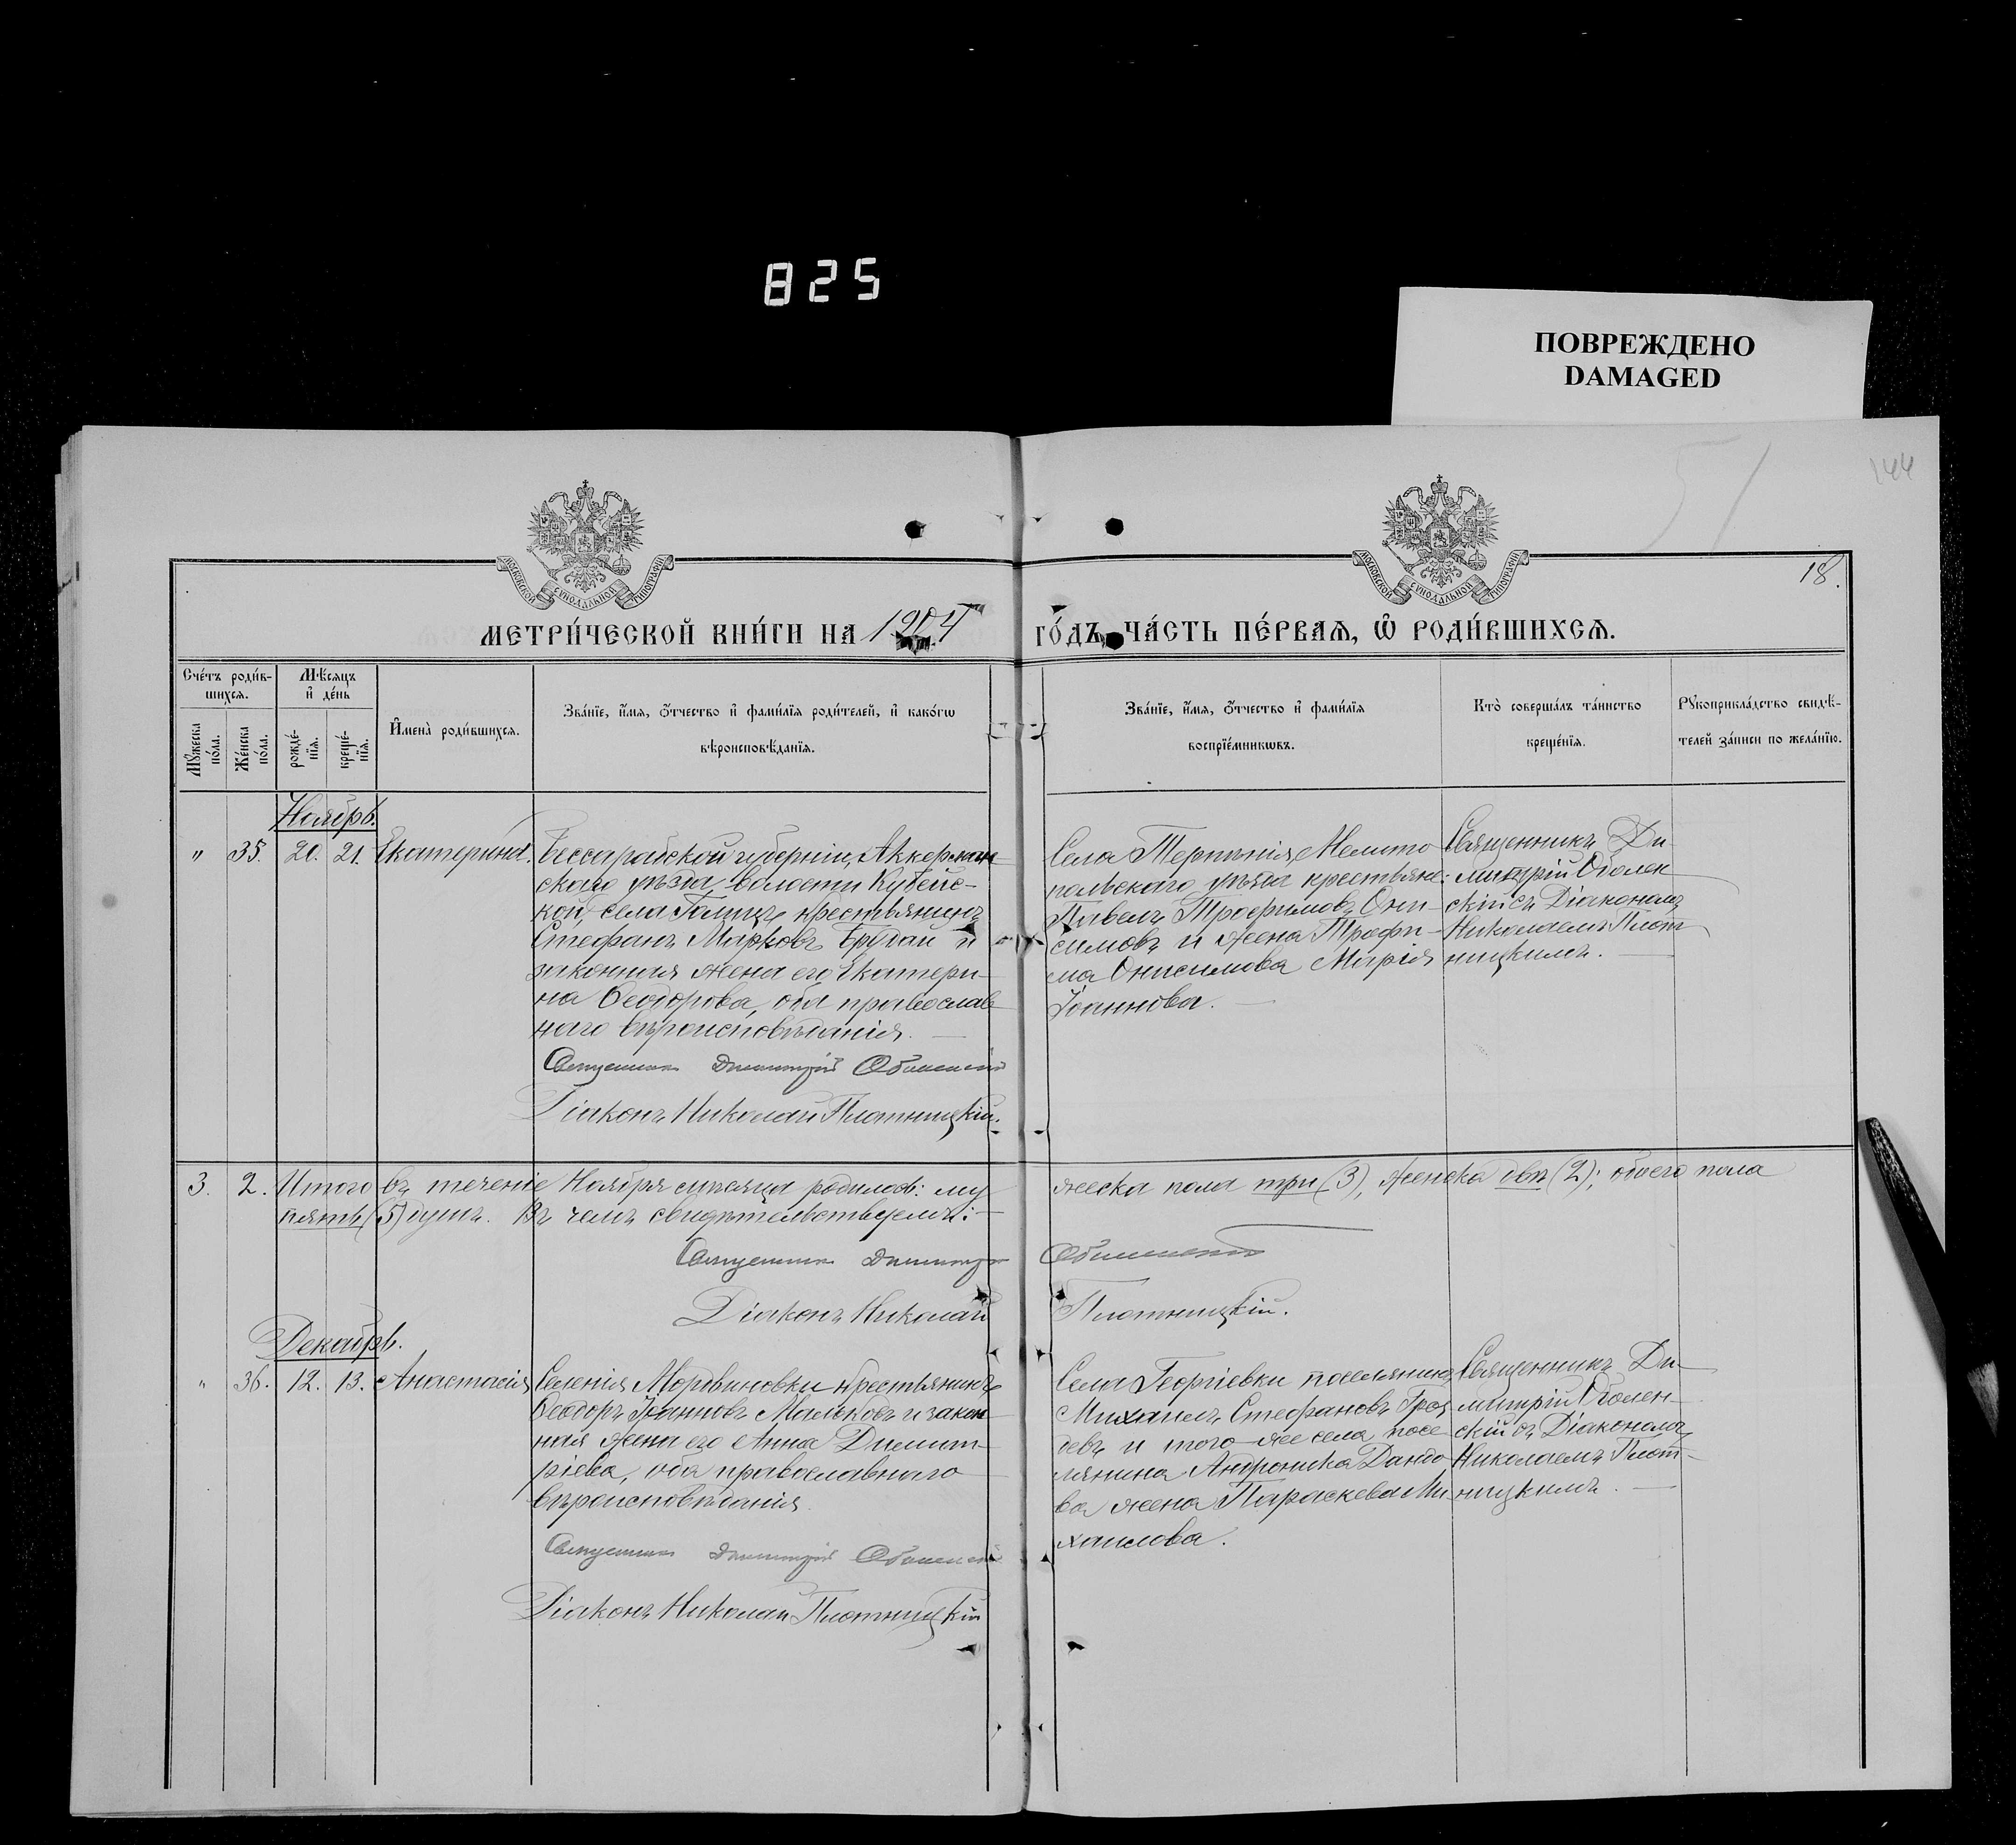 825
ПОВРЕЖДЕНО
DAMAGED
51
144
МОСКОВСКОЙ СУНОДАЛЬНОЙ ТИПОГРАФІИ
МОСКОВСКОЙ СУНОДАЛЬНОЙ ТИПОГРАФІИ
18.
МЕТРИ́ЧЕСКОЙ КНИ́ГИ НА 1904 ГО́ДЪ, ЧА́СТЬ ПЕ́РВАЯ, Ѡ РОДИ́ВШИХСЯ.
Сче́тъ роди́в-
шихся.
Мꙋ́жеска по́ла.
Же́нска по́ла.
Мѣ́сяцъ
и҆ де́нь
рожде́-
нїя.
креще́-
нїя.
И҆мена̀ роди́вшихся.
Зва́нїе, и҆́мя, ѻ҆́тчество и҆ фами́лїя роди́телей, и҆ како́гѡ
вѣроисповѣ́данїя.
Зва́нїе, и҆́мя, ѻ҆́тчество и҆ фами́лїя
воспрїе́мникѡвъ.
Кто̀ соверша́лъ та́инство
креще́нїя.
Рꙋкоприкла́дство свидѣ́-
телей за́писи по жела́нїю.
Ноябрь.
" 35. 20. 21. Екатерина.
Бессарабской губерніи, Аккерман-
скаго уѣзда, волости Кубейс-
кой, села Галицъ крестьянинъ
Стефанъ Марковъ и
законная жена его Екатери-
на Ѳеодорова, оба православ-
наго вѣроисповѣданія.
Священникъ Димитрій Оболенскій
Діаконъ Николай Плотницкій.
Села Терпѣнія, Мелито-
польскаго уѣзда крестьяне:
Павелъ Трофимовъ Они-
симовъ и жена Трофи-
ма Онисимова Марія
Іоаннова.
Священникъ Ди-
митрій Оболен-
скій съ Діакономъ
Николаемъ Плот-
ницкимъ.
3. 2. Итого въ теченіе Ноября мѣсяца родилось: му-
жеска пола три (3), женска двѣ (2); обоего пола
пять (5) душъ. Въ чемъ свидѣтельствуемъ:
Священникъ Димитрій Оболенскій
Діаконъ Николай Плотницкій.
Декабрь.
" 36. 12. 13. Анастасія
Селенія Мордвиновки крестьянинъ
Ѳеодоръ Іоанновъ Мальковъ и закон-
ная жена его Анна Димит-
ріева, оба православнаго
вѣроисповѣданія.
Священникъ Димитрій Оболенскій
Діаконъ Николай Плотницкій
Села Георгіевки поселянинъ
Михаилъ Стефановъ
и того-же села посе-
лянина Андроника
жена Параскева Ми-
хаилова.
Священникъ Ди-
митрій Оболен-
скій съ Діакономъ
Николаемъ Плот-
ницкимъ.